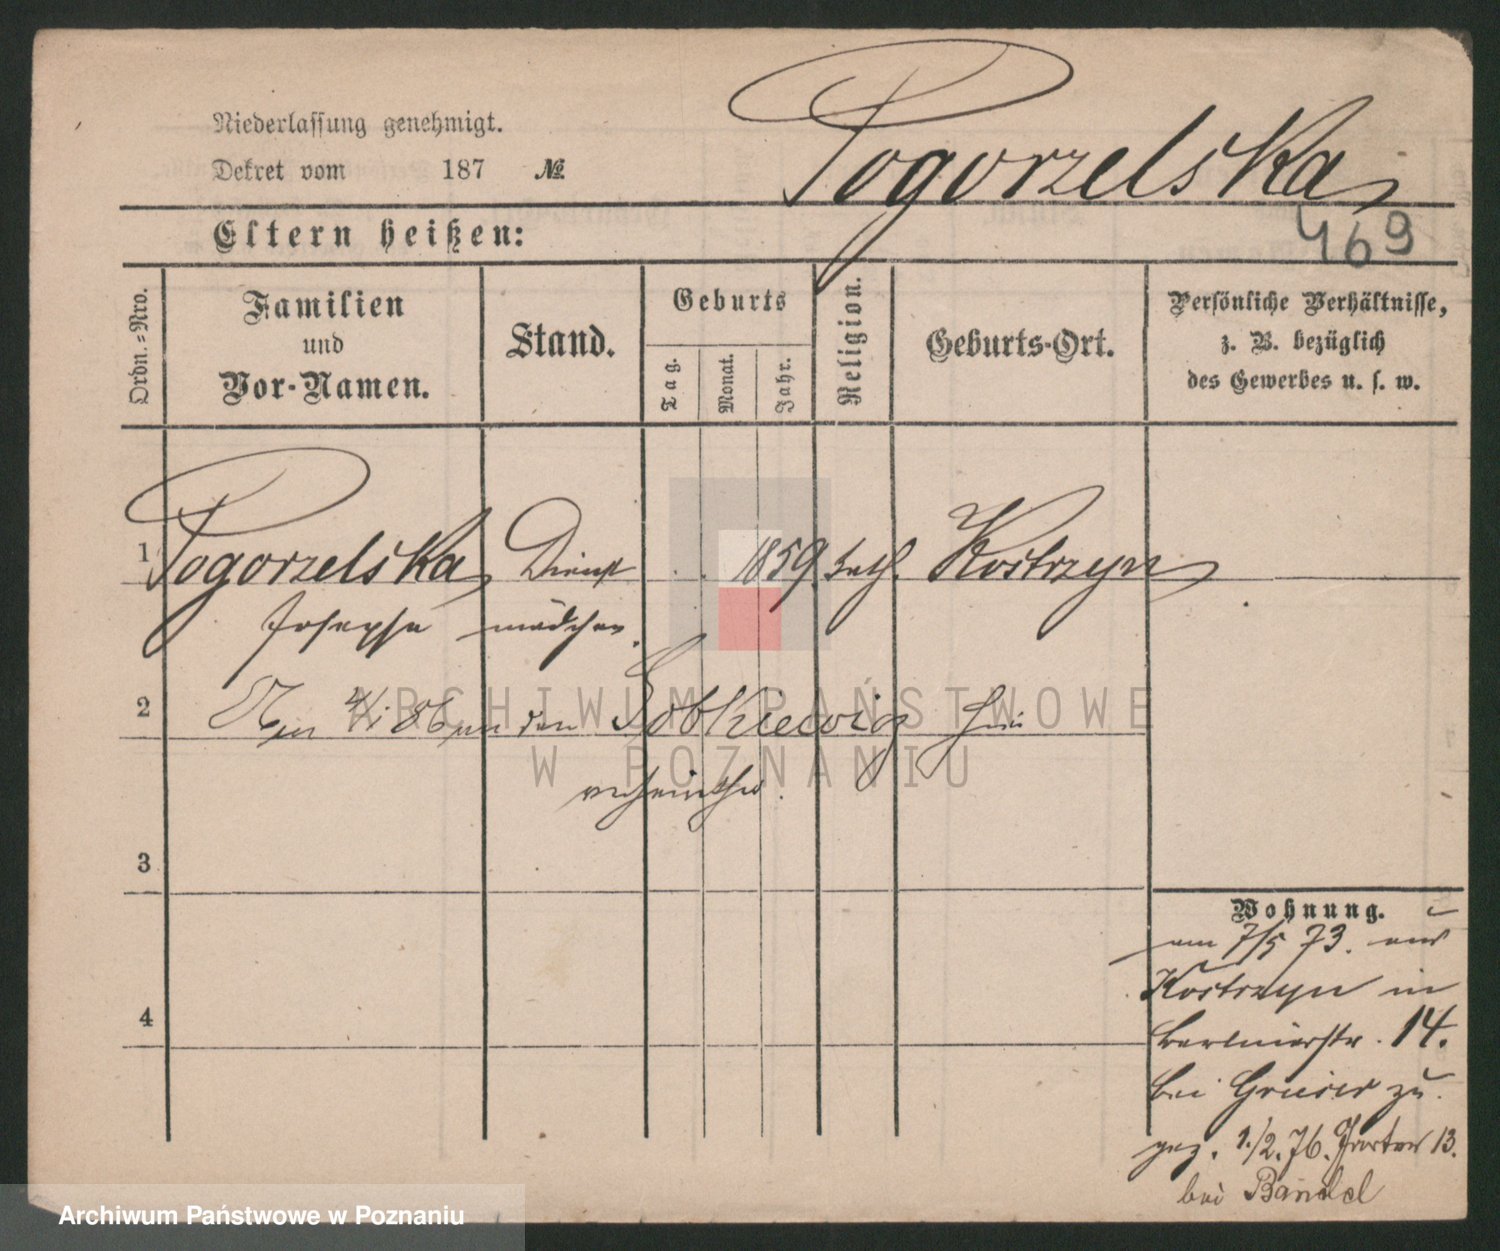 Niederlassung genehmigt.
Dekret vom 187 №
Pogorzelska
469
Eltern heißen:
Ordn.-Nro.
Familien
und
Vor-Namen.
Stand.
Geburts
Tag.
Monat.
Jahr.
Religion.
Geburts-Ort.
Persönliche Verhältnisse,
z. B. bezüglich
des Gewerbes u. s. w.
1 Pogorzelska Dienst 1859. kath. Kostrzyn
Josepha mädchen.
2 den hier
3
Wohnung.
am 7/5 73. aus
Kostrzyn in
4
Berlinerstr. 14.
bei zu
gez. 1./2. 76. 13.
bei Bandel
ARCHIWUM PAŃSTWOWE
W POZNANIU
Archiwum Państwowe w Poznaniu